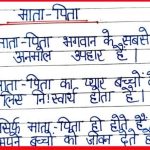 माता-पिता
माता-पिता भगवान के सबसे
अनमोल उपहार हैं।
माता-पिता का प्यार बच्चों
लिए निःस्वार्थ होता है।
सिर्फ माता-पिता ही होते हैं
अपने बच्चों को जीवन देते